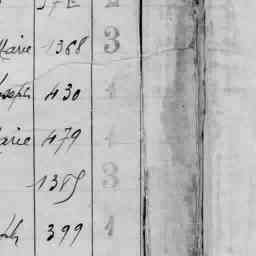 Marie 1368 3
Joseph 430 1
Marie 479 1
1385 3
399 1